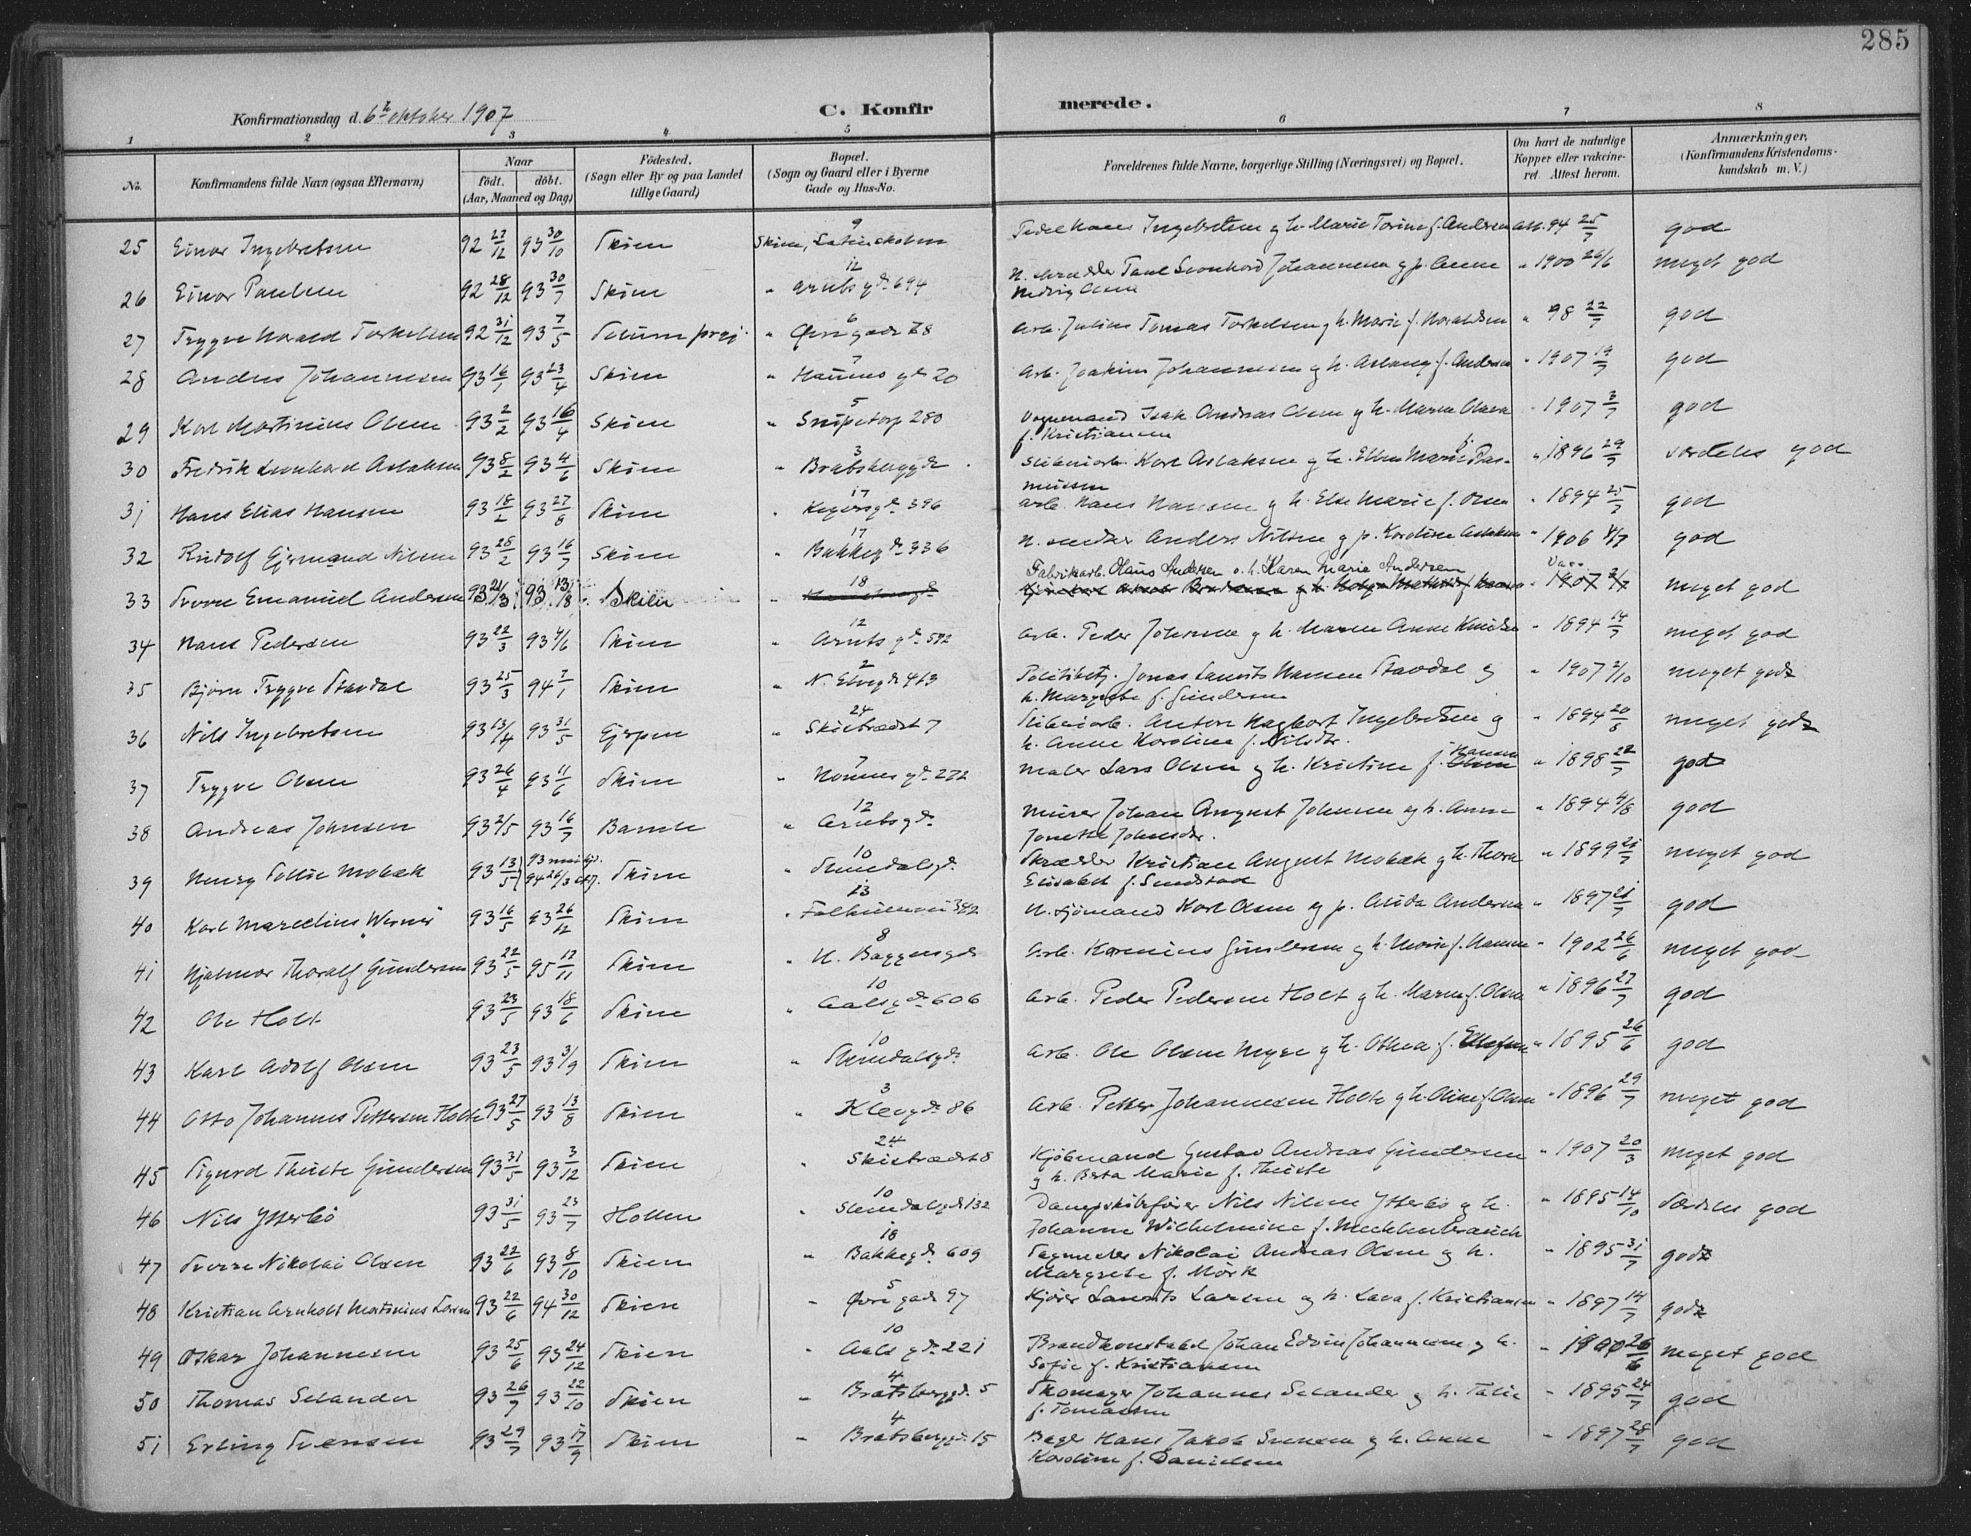 285
Konfirmationsdag d. 6te oktober 1907
C. Konfirmerede.
1 2 3 4 5 6 7 8
No.
Konfirmandens fulde Navn (ogsaa Efternavn)
Naar
födt. döbt.
(Aar, Maaned og Dag)
Födested.
(Sogn eller By og paa Landet
tillige Gaard)
Bopæl.
(Sogn og Gaard eller i Byerne
Gade og Hus-No.
Forældrenes fulde Navne, borgerlige Stilling (Næringsvei) og Bopæl.
Om havt de naturlige
Kopper eller vakcine-
ret. Attest herom.
Anmærkninger.
(Konfirmandens Kristendoms-
kundskab m. V.)
25 Einar Ingebretsen 92 22/12 93 30/10 Skien Skien, 9 Hans Ingebretsen g h. Marie f. Andersen att. 94 25/7 god
26 Einar Paulsen 92 28/12 93 30/7 Skien " 12 Arnts gd. 694 Johannesen g p. Anne " 1900 26/6 meget god
Olsen
27 Trygve Harald Torkelsen 92 31/12 93 7/5 Solum " 6 Øvregade 78 Arb. Julius Tomas Torkelsen g h. Marie f. Haraldsen " 98 22/7 god
28 Anders Johannesen 93 16/1 93 23/4 Skien " 7 gd. 20 Arb. Joakim Johannesen g h. Aslaug f. Andersen " 1907 19/7 god
29 Karl Martinius Olsen 93 2/2 93 16/4 Skien " 5 Snipetorp 280 Isak Andreas Olsen g h. Maren " 1907 3/7 god
f. Kristiansen
30 Fredrik Leonhard Aslaksen 93 8/2 93 4/6 Skien " 3 Bratsberggd. Karl Aslaksen g h. Ellen Marie f. Ras- " 1896 29/7 særdeles god
mussen
31 Hans Elias Hansen 93 18/2 93 27/8 Skien " 17 396 Arb. Hans Hansen g h. Else Marie f. Olsen " 1894 25/7 god
32 Rudolf Nilsen 93 28/2 93 16/7 Skien " 17 Bakkegd. 336 Anders Nilsen g p. Karoline Aslaksen " 1906 4/7 god
Fabrikarb. Olaus Andersen o. h. Karen Marie Andersen
33 Emanuel Andersen 93 21/3 93 13/8 Skien " 18 1907 2/7 meget god
34 Hans Pedersen 93 22/3 93 4/6 Skien " 12 Arnts gd. 572 Arb. Peder Johnsen g h. Maren Anne Knudsen " 1894 14/7 meget god
35 Bjarne Trygve Stavdal 93 25/3 94 7/1 Skien " 2 N. Elvegd 413 Politibetj. Jonas Laurits Hansen Stavdal g " 1907 2/10 meget god
h. Margrete f. Gundersen
36 Nils Ingebretsen 93 13/4 93 31/5 Gjerpen " 24 Skistrædet 7 Anton Hagbart Ingebretsen g " 1894 20/6 meget god
h. Anne Karoline f. Nilsdtr.
37 Trygve Olsen 93 26/4 93 11/6 Skien " 7 gd. 272 Maler Lars Olsen g h. Kristine f. Hansen " 1898 22/7 god
38 Andreas Johnsen 93 2/5 93 16/7 Bamle " 12 Arntsgd. Murer Johan August Johnsen og h. Anne " 1894 4/8 god
Jonette Johnsdtr.
39 Henry Mobæk 93 13/5 Skien " 10 Skrædder Kristian August Mobæk g h. Thora " 1899 21/7 meget god
Elisabet f. Sundstad
40 Karl Marcelius Werner 93 16/5 93 26/12 Skien " 13 342 U. sjömand Karl Olsen og p. Andersen " 1897 21/7 god
41 Hjalmar Thoralf Gundersen 93 22/5 95 17/11 Skien " 8 N. Baggensgd Arb. Gundersen g h. Marie f. Hansen " 1902 26/6 meget god
42 Ole Holt 93 23/5 93 18/6 Skien " 10 Aalsgd. 606 Arb. Peder Pedersen Holt g h. Maren f. Olsen " 1896 27/7 god
43 Karl Adolf Olsen 93 23/5 93 3/9 Skien " 10 Arb. Ole Olsen Myre g h. Othea f. Ellefsen " 1895 26/6 god
44 Otto Johannes Pettersen Holte 93 27/5 93 13/8 Skien " 3 Klevgd. 86 Arb. Petter Johannesen Holte g h. Oline f. Olsen " 1896 29/7 meget god
45 Sigurd Thiiste Gundersen 93 31/5 93 3/12 Skien " 24 Skistrædet 8 Kjöbmand Gustav Andreas Gundersen " 1907 20/3 meget god
g h. Berta Marie f. Thiiste
46 Nils Ytterbö 93 31/5 93 23/7 Hollen " 10 132 Dampskibsfører Nils Nilsen Ytterbö g h. " 1895 14/10 særdeles god
Johanne Wilhelmine f.
47 Sverre Nikolai Olsen 93 22/6 93 8/10 Skien " 18 Bakkegd. 609 Sagmester Nikolai Andreas Olsen g h. " 1895 31/7 god
Margrete f. Mörk
48 Kristian Arnholt Martinius Larsen 93 22/6 94 30/12 Skien " 5 Øvregade 97 Kjører Laurits Larsen og h. Lava f. Kristiansen " 1897 14/7 god
49 Oskar Johannesen 93 25/6 93 24/12 Skien " 10 Aals gd. 221 Brandkonstabel Johan Edvin Johannesen g h. " 1900 26/6 meget god
Sofie f. Kristiansen
50 Thomas Selander 93 26/7 93 22/10 Skien " 4 Bratsberggd. 5 Skomager Johannes Selander g h. Talie " 1895 24/7 god
f. Tomassen
51 Erling Svensen 93 29/7 93 17/9 Skien " 4 Bratsberggd. 15 Hans Jakob Svensen g h. Anne " 1897 28/7 god
Karoline f. Danielsen